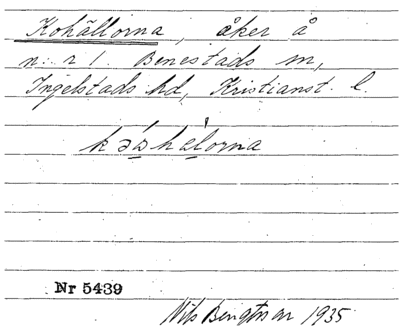 Kohällorna, åker å
n:r 1. Benestads sn,
Ingelstads hd, Kristianst. l.
Nr 5439
Nils Bengtsson 1935